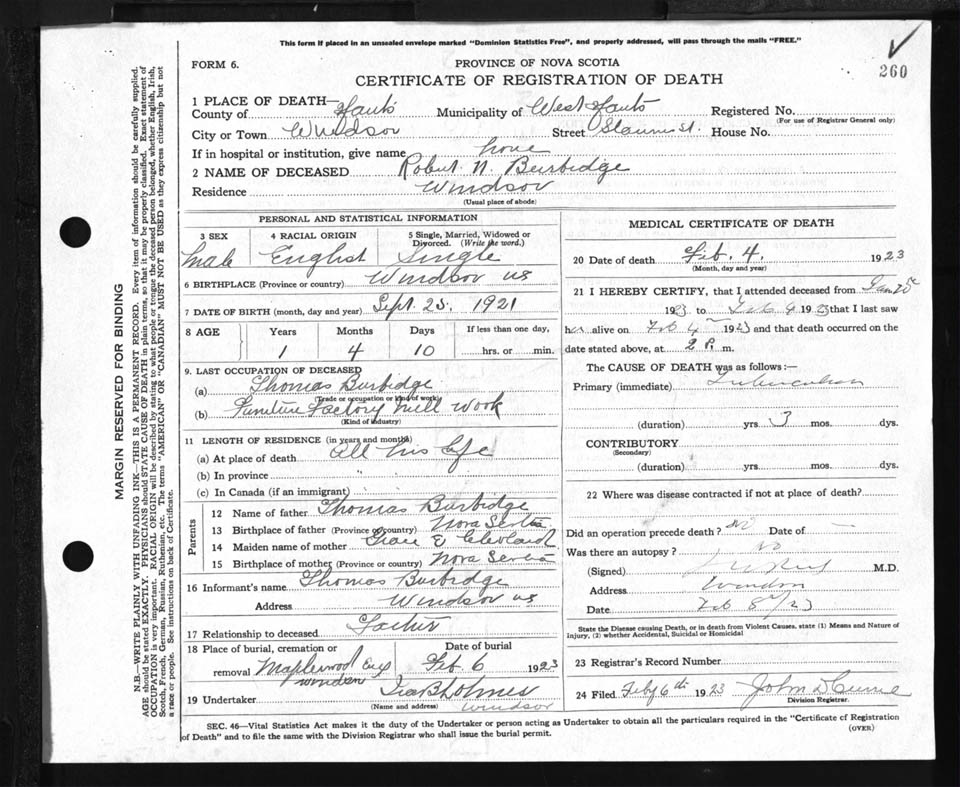 This form if placed in an unsealed envelope marked "Dominion Statistics Free", and properly addressed, will pass through the mails "FREE."
260
FORM 6.
PROVINCE OF NOVA SCOTIA
CERTIFICATE OF REGISTRATION OF DEATH
1 PLACE OF DEATH—
County of Hants Municipality of West Hants Registered No.
(For use of Registrar General only)
City or Town Windsor Street St. House No.
If in hospital or institution, give name home
2 NAME OF DECEASED Robert N. Burbidge
Residence Windsor
(Usual place of abode)
PERSONAL AND STATISTICAL INFORMATION
3 SEX
Male
4 RACIAL ORIGIN
English
5 Single, Married, Widowed or Divorced. (Write the word.)
Single
6 BIRTHPLACE (Province or country) Windsor NS
7 DATE OF BIRTH (month, day and year) Sept. 25. 1921
8 AGE Years Months Days If less than one day,
1 4 10 hrs. or min.
9. LAST OCCUPATION OF DECEASED
(a) Thomas Burbidge
(Trade or occupation or kind of work)
(b) Furniture Factory Mill Work
(Kind of industry)
11 LENGTH OF RESIDENCE (in years and months)
(a) At place of death All his life
(b) In province
(c) In Canada (if an immigrant)
Parents
12 Name of father Thomas Burbidge
13 Birthplace of father (Province or country) Nova Scotia
14 Maiden name of mother Grace E Cleveland
15 Birthplace of mother (Province or country) Nova Scotia
16 Informant's name Thomas Burbidge
Address Windsor NS
17 Relationship to deceased Father
18 Place of burial, cremation or removal Maplewood Windsor
Date of burial
Feb. 6 1923
19 Undertaker Ira B Holmes
(Name and address) Windsor
MEDICAL CERTIFICATE OF DEATH
20 Date of death Feb. 4. 1923
(Month, day and year)
21 I HEREBY CERTIFY, that I attended deceased from Jan 25
1923 to Feb 4 1923 that I last saw
h alive on Feb 4 1923 and that death occurred on the
date stated above, at 2 P. m.
The CAUSE OF DEATH was as follows:—
Primary (immediate) Tuberculosis
(duration) yrs. 3 mos. dys.
CONTRIBUTORY
(Secondary)
(duration) yrs. mos. dys.
22 Where was disease contracted if not at place of death?
Did an operation precede death? No Date of —
Was there an autopsy? No
(Signed) M.D.
Address Windsor
Date Feb 8 /23
State the Disease causing Death, or in death from Violent Causes, state (1) Means and Nature of Injury, (2) whether Accidental, Suicidal or Homicidal
23 Registrar's Record Number
24 Filed Feby 6th 1923 John D Currie
Division Registrar.
SEC. 46—Vital Statistics Act makes it the duty of the Undertaker or person acting as Undertaker to obtain all the particulars required in the "Certificate of Registration
of Death" and to file the same with the Division Registrar who shall issue the burial permit.
(OVER)
MARGIN RESERVED FOR BINDING
N.B.—WRITE PLAINLY WITH UNFADING INK—THIS IS A PERMANENT RECORD. Every item of information should be carefully supplied.
AGE should be stated EXACTLY. PHYSICIANS should STATE CAUSE OF DEATH in plain terms, so that it may be properly classified. Exact statement of
OCCUPATION is very important. RACIAL ORIGIN will be described by stating to what people or tongue the deceased person belonged, whether English, Irish,
Scotch, French, German, Russian, Ruthenian, etc. The terms "AMERICAN" OR "CANADIAN" MUST NOT BE USED as they express citizenship but not
a race or people. See instructions on back of Certificate.